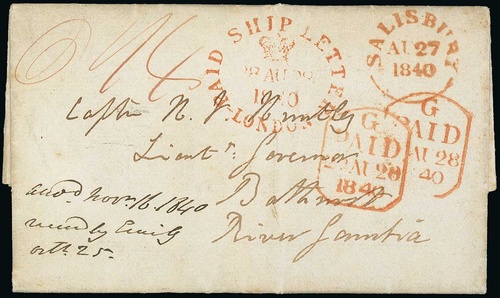 PAID SHIP LETTER
28 AU 28
1840
LONDON
SALISBURY
AU 27
1840
G
PAID
AU 28
1840
G
PAID
AU 28
40
Captn H. V. Huntley
Lieutt. Governor
Bathurst
River Gambia
ansd. Novr. 16. 1840
recd by Emily
octr. 25.